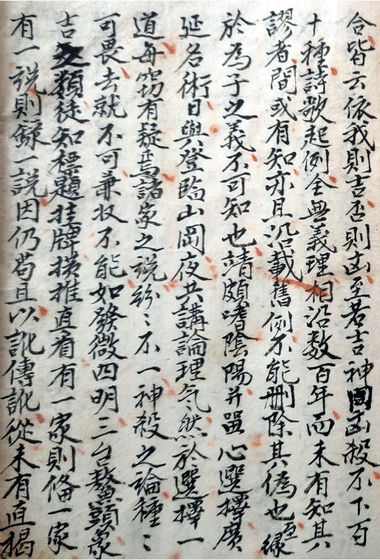 合皆云依我則吉否則凶至若吉神凶殺不下百
十種詩數起例全無義理相沿数百年而未有知其
謬者間或有知亦且沿載舊例不能刪除其偽也緣
於為子之義不可知也靖頗嗜陰陽并留心選擇廣
延名術日與登臨山岡夜共講論理气然於選擇一
道毎竊有疑焉諸家之說紛〻不一神殺之論種〻
可畏去就不可兼收不能如發微四明三台鰲頭象
吉之類徒知標題挂牌橫推直看有一家則偹一家
有一說則錄一說因仍苟且以訛傳訛從未有直揭